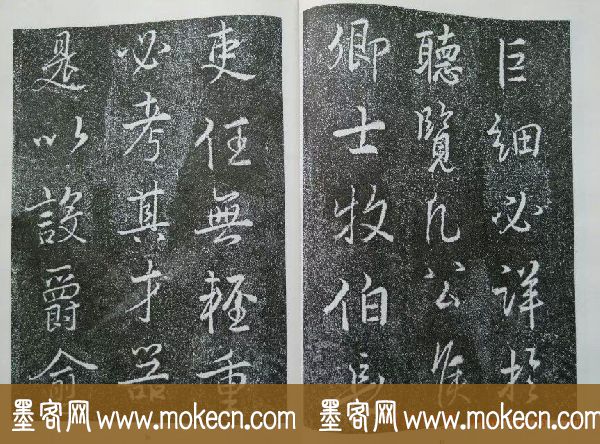 巨細必詳於
聽覽凡公侯
卿士牧伯長
吏任無輕重
必考其才器
是以設爵
墨客网 www.mokecn.com
墨客网 www.mokecn.com